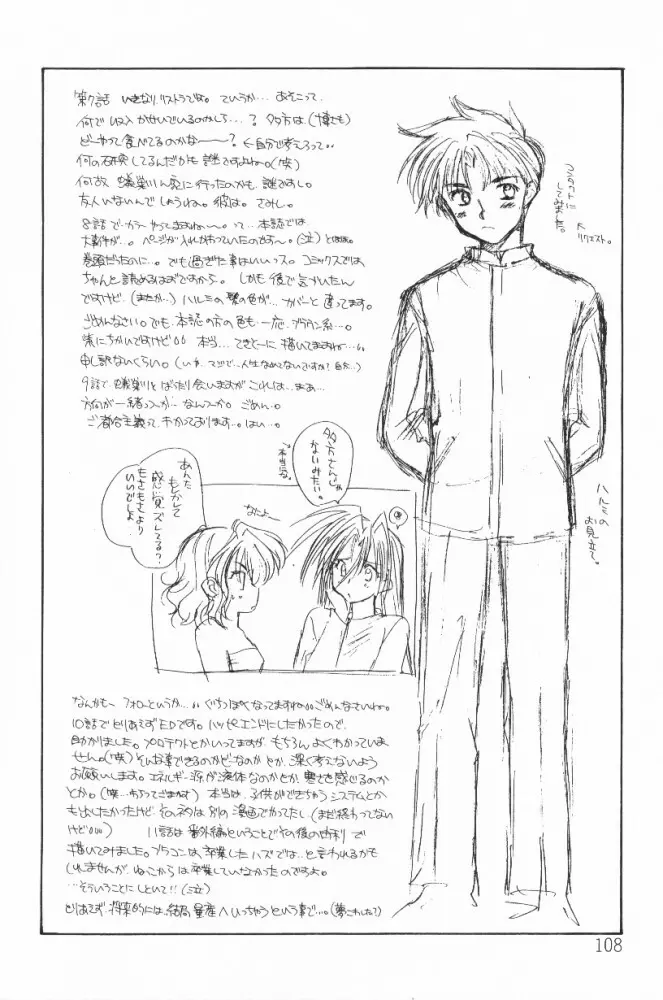 第7話 いきなりリストラですよ。ていうか…あそこって、
何で収入かせいでいるのかしら…？夕方は(博士も)
どーやって食べてるのかな———？←自分で考えろって…
何の研究してるんだかも謎ですよねー。(笑)
何故、蟻巣川ん家に行ったのかも、謎ですし。
友人いないんでしょうね。彼は。さみし。
8話で…カラーやってますね〜。って…本誌では
大事件が…。ページが入れかわっていたのです〜。(泣)とほほ。
巻頭だったのに…。でも過ぎた事はいいっス。コミックスでは
ちゃんと読めるはずですから。しかも後で気づいたん
ですけど、(またか…)ハルミの髪の色が…カバーと違ってます。
ごめんなさい。でも、本誌の方の色も一応、ブラウン系…。
紫にちかいですけど 本当…てきとーに描いてますね…
申し訳ないくらい。
9話で蟻巣川とばったり会いますがこれは…まあ…
方向が一緒っつーか…なんつーか。ごめん。
ご都合主義って、わかっております…。はい…。
コンタクトに
してみた。
リクエスト。
ハルミの
お見立て。
夕方さんじゃ
ないみたい。
本当ね。
あんた
もしかして
感覚ズレてる？
もさもさより
いいでしょ
なによー
なんかも〜、フォローというか… ぐちっぽくなってますね ごめんなさいね。
10話でとりあえずEDです。ハッピーエンドにしたかったので、
助かりました。プロテクトとかいってますが、もちろんよくわかっていま
せん。(笑)そんな事できるのかどーなのかとか、深く考えないよう
お願いします。エネルギー源が液体なのかとか、寒さを感じるのか
とか。(笑…ちょってごまかす) 本当は、子供ができちゃうシステムとか
も出したかったけど、そのネタは別の漫画でかってたし(まだ終わってない
けど) 11話は番外編ということでその後の世界で
描いてみました。ブラコンは、卒業したハズでは…と言われるかも
しれませんが、ねっこからは卒業していなかったのですよ。
…そういうことにしといて!!(泣)
とりあえず、将来的には、結局量産へいっちゃうという事で…。(夢こわした？)
108